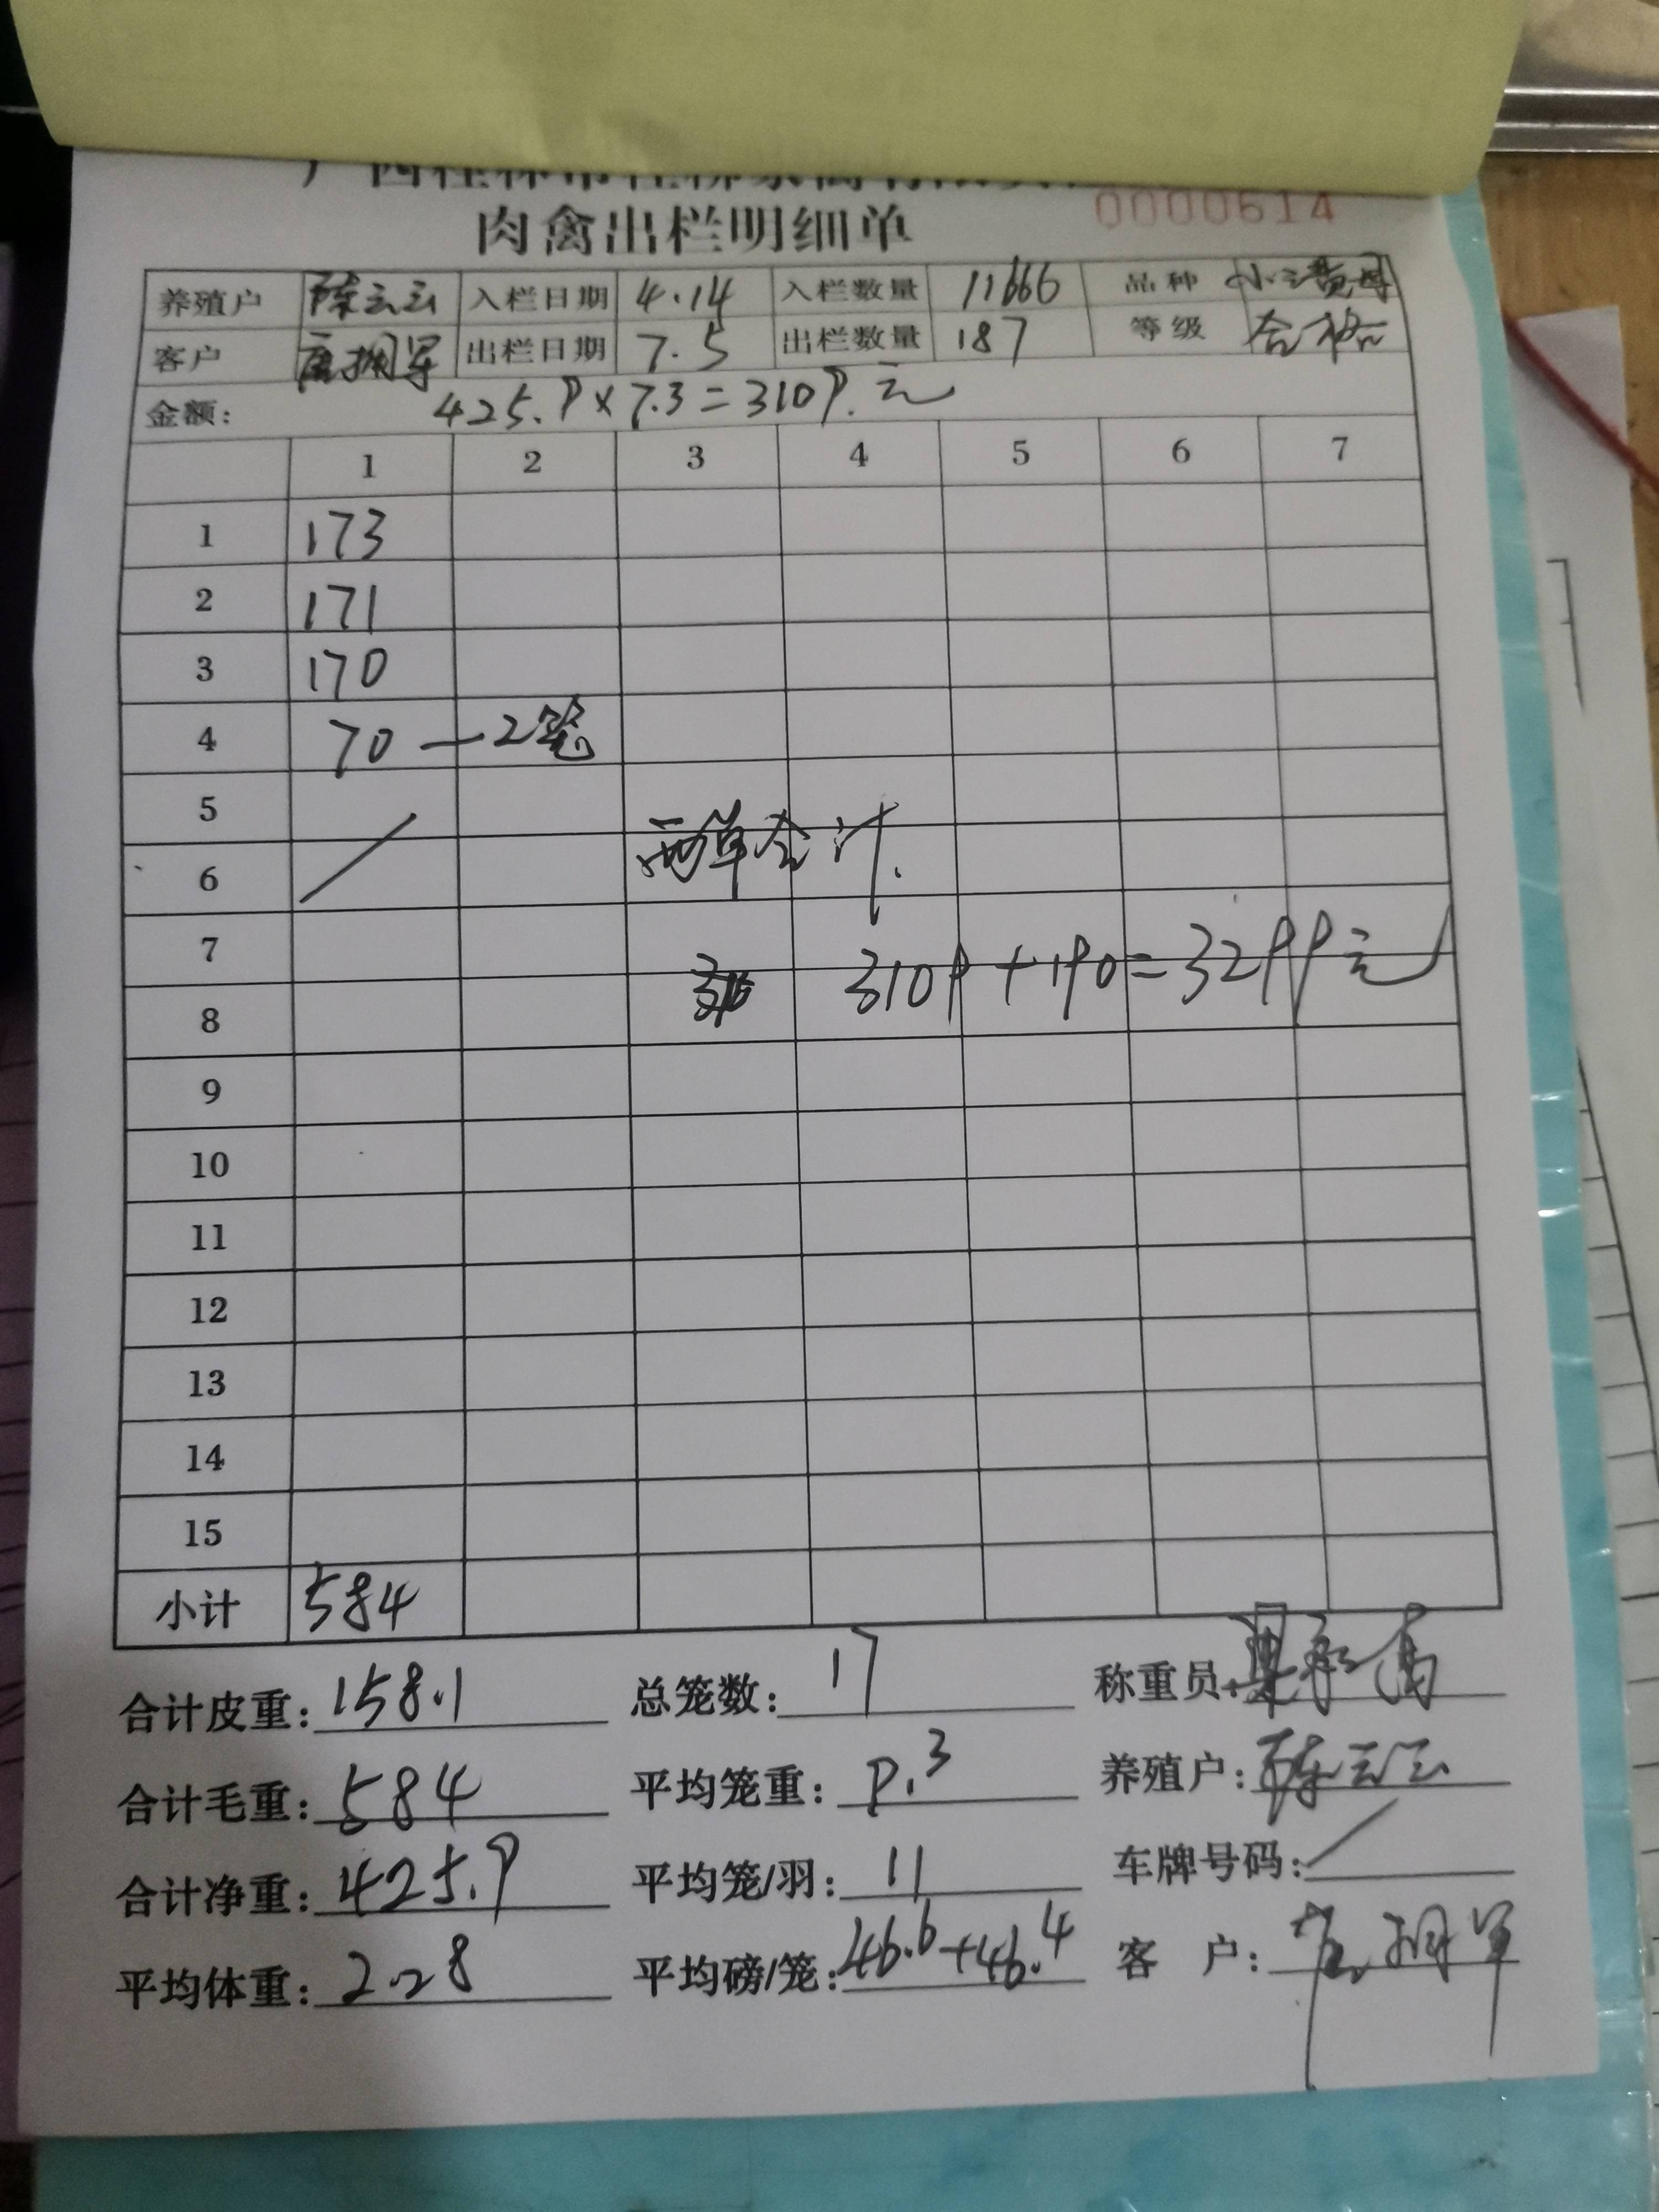 肉禽出栏明细单 0000614
养殖户 陈云云 入栏日期 4.14 入栏数量 11666 品种
客户 出栏日期 7.5 出栏数量 187 等级 合格
金额: 425.9×7.3=3109.元
1 2 3 4 5 6 7
1 173
2 171
3 170
4 70 — 2笼
5
6 两单合计.
7
8 3109+190=3299元
9
10
11
12
13
14
15
小计 584
合计皮重: 158.1 总笼数: 17 称重员:
合计毛重: 584 平均笼重: 9.3 养殖户: 陈云云
合计净重: 425.9 平均笼/羽: 11 车牌号码:
平均体重: 2.28 平均磅/笼: 46.6+46.4 客 户: